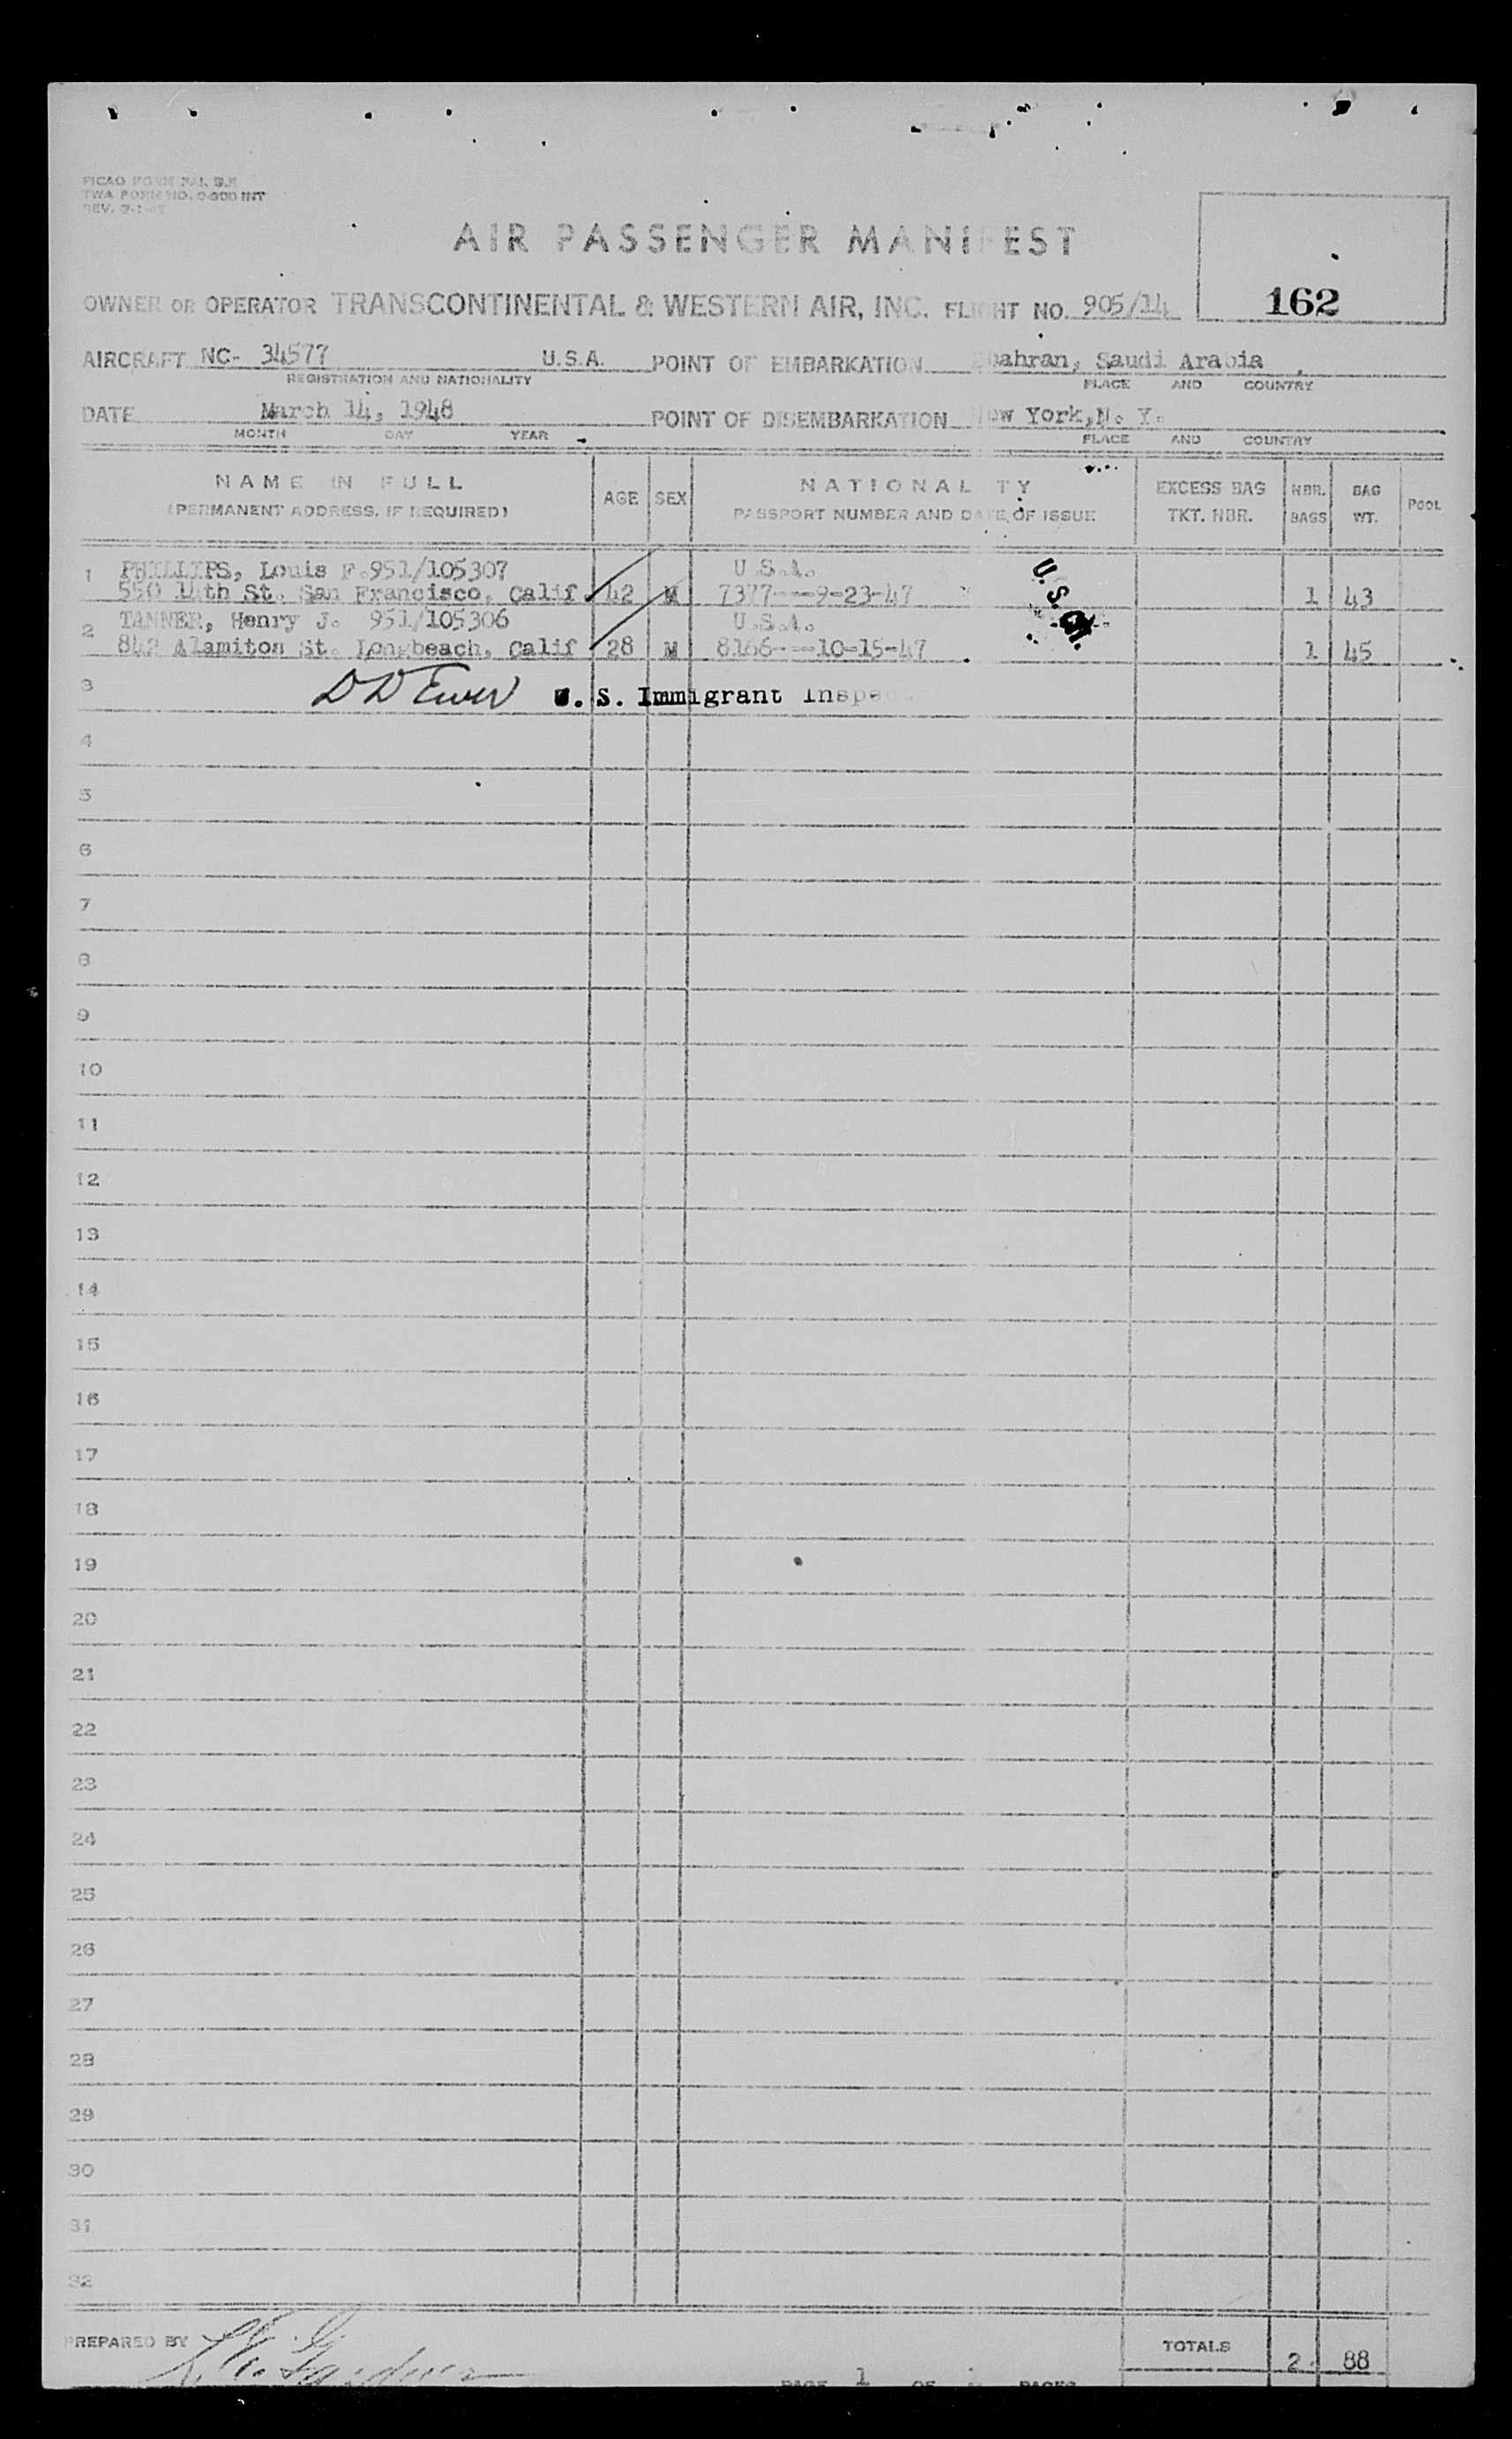 PICAO FORM
TWA FORM NO. 0-800 INT
REV.
AIR PASSENGER MANIFEST
162
OWNER OR OPERATOR TRANSCONTINENTAL & WESTERN AIR, INC. FLIGHT NO. 905/14
AIRCRAFT NC- 34577 U.S.A. POINT OF EMBARKATION Dhahran, Saudi Arabia
REGISTRATION AND NATIONALITY PLACE AND COUNTRY
DATE March 14, 1948 POINT OF DISEMBARKATION New York, N. Y.
MONTH DAY YEAR PLACE AND COUNTRY
NAME IN FULL AGE SEX NATIONALITY EXCESS BAG NBR. BAG POOL
(PERMANENT ADDRESS, IF REQUIRED) PASSPORT NUMBER AND DATE OF ISSUE TKT. NBR. BAGS WT.
1 PHILLIPS, Louis F. 951/105307 U.S.A.
550 14th St. San Francisco, Calif 42 M 7377---9-23-47 1 43
U. S. Cit.
2 TANNER, Henry J. 951/105306 U.S.A.
842 Alamitos St. Longbeach, Calif 28 M 8166---10-15-47 1 45
3 D D Ewer U. S. Immigrant Inspe
4
5
6
7
8
9
10
11
12
13
14
15
16
17
18
19
20
21
22
23
24
25
26
27
28
29
30
31
32
PREPARED BY TOTALS 2 88
PAGE 1 OF PAGES